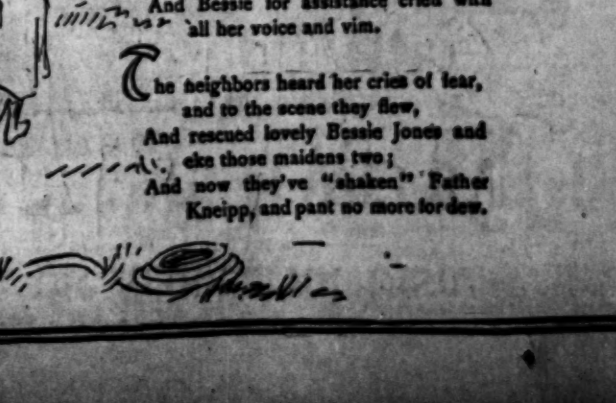 And Bessie for assistance cried with
all her voice and vim.
The neighbors heard her cries of fear,
and to the scene they flew,
And rescued lovely Bessie Jones and
eke those maidens two;
And now they've "shaken" Father
Kneipp, and pant no more for dew.